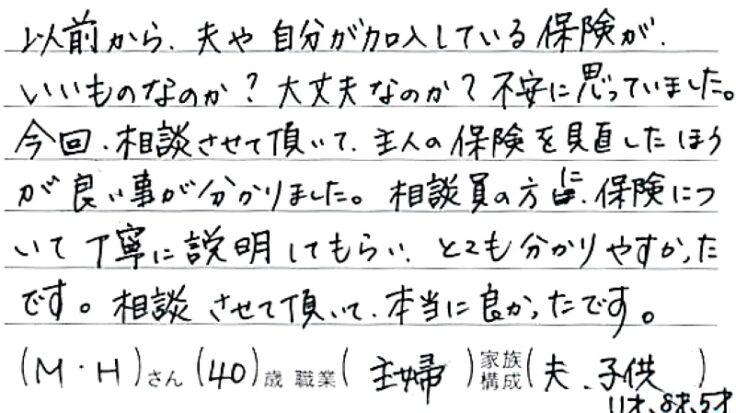 以前から、夫や自分が加入している保険が、
いいものなのか？大丈夫なのか？不安に思っていました。
今回、相談させて頂いて、主人の保険を見直したほう
が良い事が分かりました。相談員の方に、保険につ
いて丁寧に説明してもらい、とても分かりやすかった
です。相談させて頂いて、本当に良かったです。
(M・H)さん (40)歳 職業(主婦)家族構成(夫、子供)
11才、8才、5才